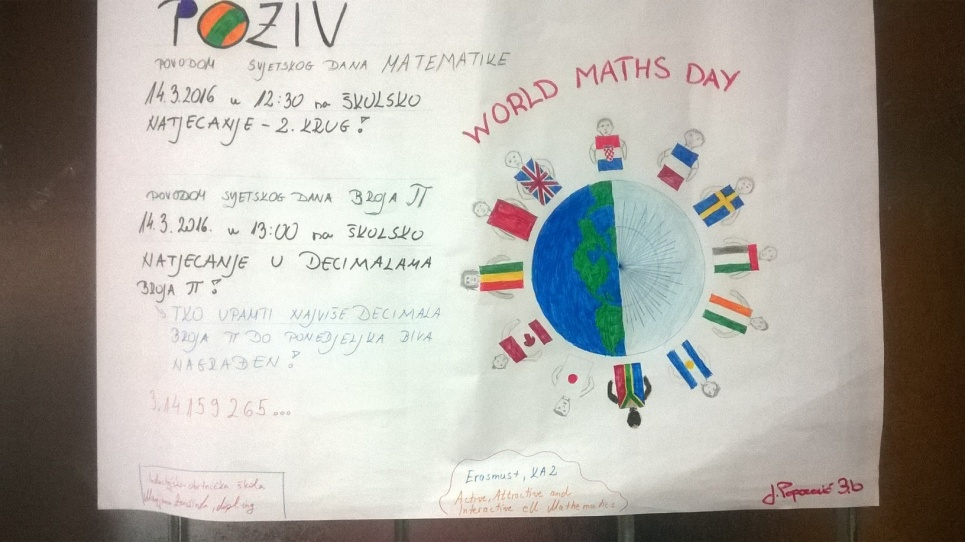 POZIV
POVODOM SVJETSKOG DANA MATEMATIKE
14.3.2016 u 12:30 na ŠKOLSKO
NATJECANJE - 2. KRUG!
POVODOM SVJETSKOG DANA BROJA π
14.3.2016. u 13:00 na ŠKOLSKO
NATJECANJE U DECIMALAMA
BROJA π!
TKO UPAMTI NAJVIŠE DECIMALA
BROJA π DO PONEDJELJKA BIVA
NAGRAĐEN!
3,14159265...
škola
WORLD MATHS DAY
Erasmus+, KA2
Active, Attractive and
Interactive Mathematics
J. Popović 3.b